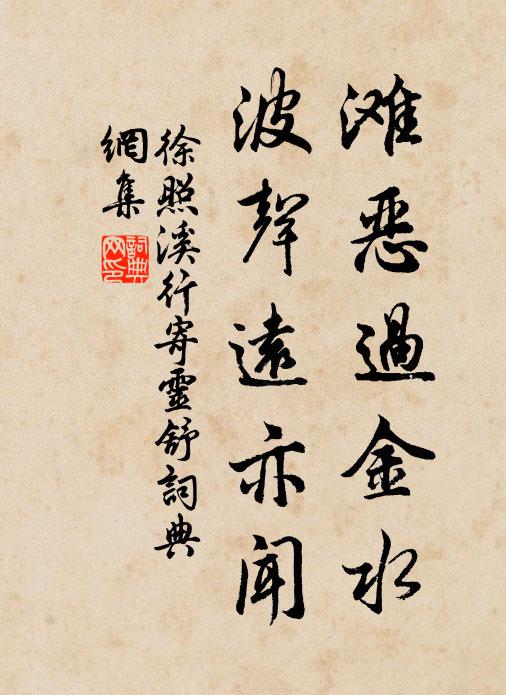 滩恶過金水
波聲遠亦闻
徐照溪行寄靈舒詞典
網集
詞典网印